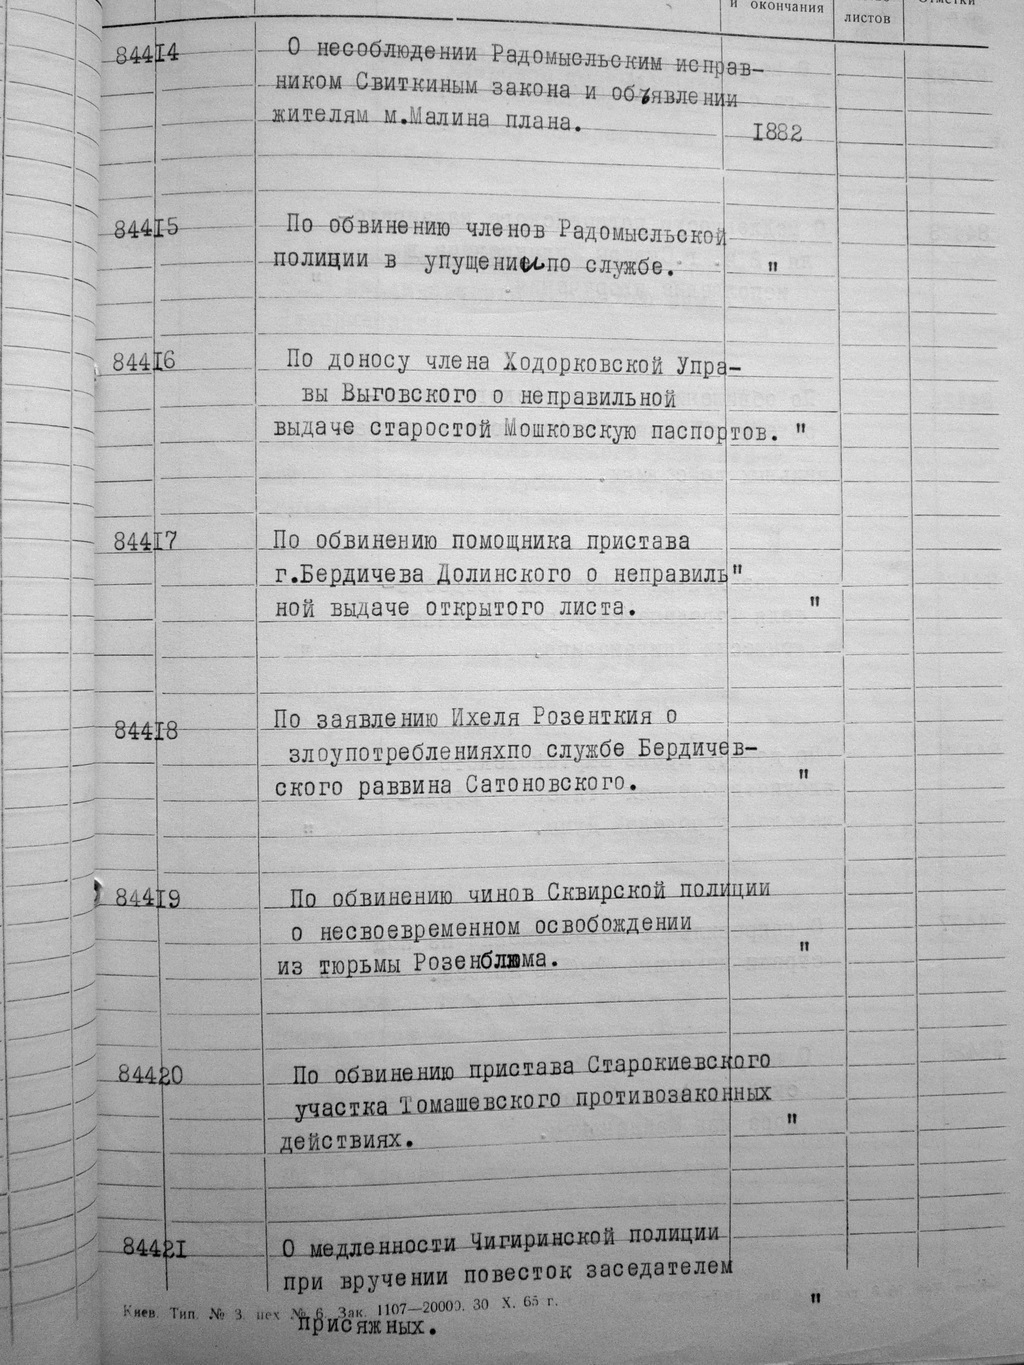 и окончания
листов
84414 О несоблюдении Радомысльским исправ-
ником Свиткиным закона и объявлении
жителям м.Малина плана. 1882
84415 По обвинению членов Радомысльской
полиции в упущении по службе. "
84416 По доносу члена Ходорковской Упра-
вы Выговского о неправильной
выдаче старостой Мошковскую паспортов. "
84417 По обвинению помощника пристава
г.Бердичева Долинского о неправиль"
ной выдаче открытого листа. "
84418 По заявлению Ихеля Розенткия о
злоупотребленияхпо службе Бердичев-
ского раввина Сатоновского. "
84419 По обвинению чинов Сквирской полиции
о несвоевременном освобождении
из тюрьмы Розенблюма. "
84420 По обвинению пристава Старокиевского
участка Томашевского противозаконных
действиях. "
84421 О медленности Чигиринской полиции
при вручении повесток заседателем
присяжных. "
Киев. Тип. № 3. цех № 6. Зак. 1107—20000. 30 X. 65 г.